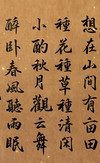 想在山間有亩田
種花種草種清閑
小酌秋月觀云舞
醉卧春風聽雨眠